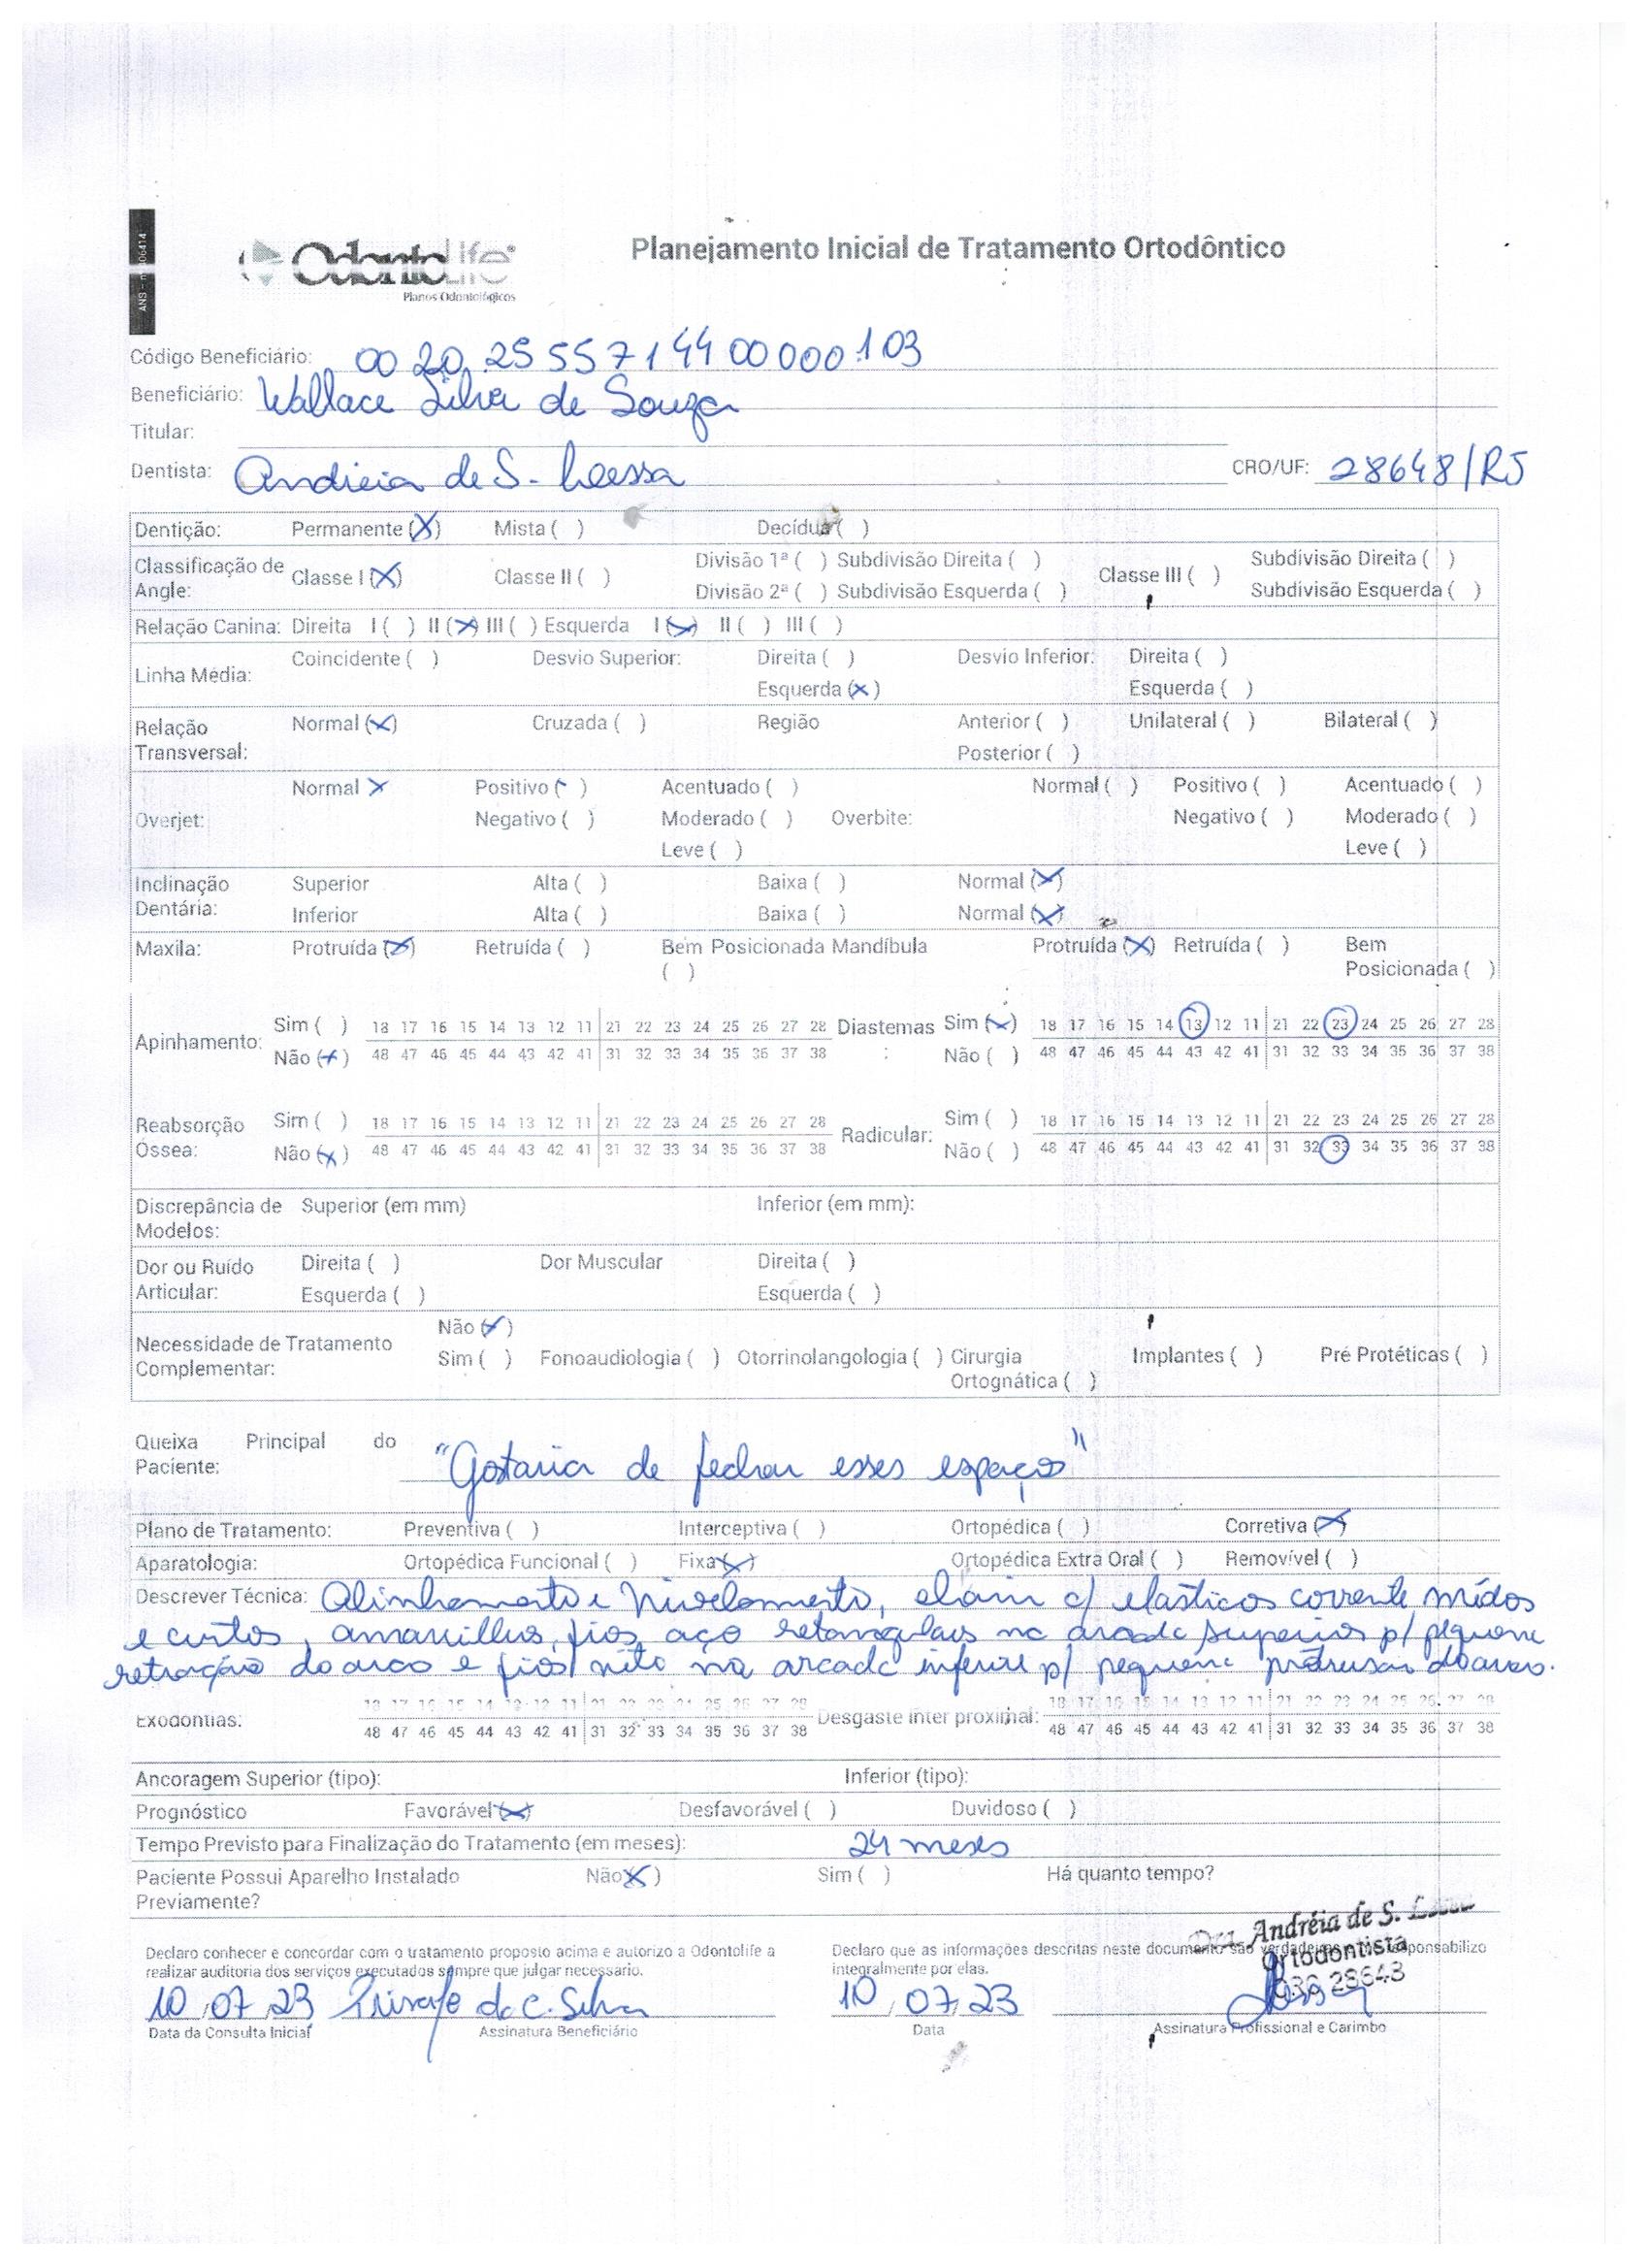 ANS - n
OdontoLife®
Planos Odontológicos
Planejamento Inicial de Tratamento Ortodôntico
Código Beneficiário: 00 20 25 557144 00000 103
Beneficiário: Wallace Silva de Souza
Titular:
Dentista: Andréia de S. CRO/UF: 28648/RJ
Dentição: Permanente (X) Mista ( ) Decídua ( )
Classificação de Angle: Classe I (X) Classe II ( ) Divisão 1ª ( ) Subdivisão Direita ( ) Classe III ( ) Subdivisão Direita ( )
Divisão 2ª ( ) Subdivisão Esquerda ( ) Subdivisão Esquerda ( )
Relação Canina: Direita I ( ) II (X) III ( ) Esquerda I (X) II ( ) III ( )
Linha Média: Coincidente ( ) Desvio Superior: Direita ( ) Desvio Inferior: Direita ( )
Esquerda (X) Esquerda ( )
Relação Transversal: Normal (X) Cruzada ( ) Região Anterior ( ) Unilateral ( ) Bilateral ( )
Posterior ( )
Normal X Positivo ( ) Acentuado ( ) Normal ( ) Positivo ( ) Acentuado ( )
Overjet: Negativo ( ) Moderado ( ) Overbite: Negativo ( ) Moderado ( )
Leve ( ) Leve ( )
Inclinação Dentária: Superior Alta ( ) Baixa ( ) Normal (X)
Inferior Alta ( ) Baixa ( ) Normal (X)
Maxila: Protruída (X) Retruída ( ) Bem Posicionada ( ) Mandíbula Protruída (X) Retruída ( ) Bem Posicionada ( )
Apinhamento: Sim ( ) 18 17 16 15 14 13 12 11 21 22 23 24 25 26 27 28 Diastemas: Sim (X) 18 17 16 15 14 13 12 11 21 22 23 24 25 26 27 28
Não (X) 48 47 46 45 44 43 42 41 31 32 33 34 35 36 37 38 Não ( ) 48 47 46 45 44 43 42 41 31 32 33 34 35 36 37 38
Reabsorção Óssea: Sim ( ) 18 17 16 15 14 13 12 11 21 22 23 24 25 26 27 28 Radicular: Sim ( ) 18 17 16 15 14 13 12 11 21 22 23 24 25 26 27 28
Não (X) 48 47 46 45 44 43 42 41 31 32 33 34 35 36 37 38 Não ( ) 48 47 46 45 44 43 42 41 31 32 33 34 35 36 37 38
Discrepância de Modelos: Superior (em mm) Inferior (em mm):
Dor ou Ruído Articular: Direita ( ) Dor Muscular Direita ( )
Esquerda ( ) Esquerda ( )
Necessidade de Tratamento Complementar: Não (X)
Sim ( ) Fonoaudiologia ( ) Otorrinolangologia ( ) Cirurgia Ortognática ( ) Implantes ( ) Pré Protéticas ( )
Queixa Principal do Paciente: "Gostaria de fechar esses espaços"
Plano de Tratamento: Preventiva ( ) Interceptiva ( ) Ortopédica ( ) Corretiva (X)
Aparatologia: Ortopédica Funcional ( ) Fixa (X) Ortopédica Extra Oral ( ) Removível ( )
Descrever Técnica: Alinhamento e Nivelamento, c/ elásticos corrente médos
e curtos, amarrilhos, fios aço retangulares na arcada superior p/ pequena
retração do arco e fios niti na arcada inferior p/ pequena protrusão do arco.
Exodontias: 18 17 16 15 14 13 12 11 21 22 23 24 25 26 27 28 Desgaste Inter proximal: 18 17 16 15 14 13 12 11 21 22 23 24 25 26 27 28
48 47 46 45 44 43 42 41 31 32 33 34 35 36 37 38 48 47 46 45 44 43 42 41 31 32 33 34 35 36 37 38
Ancoragem Superior (tipo): Inferior (tipo):
Prognóstico Favorável (X) Desfavorável ( ) Duvidoso ( )
Tempo Previsto para Finalização do Tratamento (em meses): 24 meses
Paciente Possui Aparelho Instalado Previamente? Não (X) Sim ( ) Há quanto tempo?
Declaro conhecer e concordar com o tratamento proposto acima e autorizo a Odontolife a
realizar auditoria dos serviços executados sempre que julgar necessario.
10/07/23
Data da Consulta Inicial Assinatura Beneficiário
Declaro que as informações descritas neste documento são verdadeiras responsabilizo
integralmente por elas.
10/07/23
Data Assinatura Profissional e Carimbo
Dra. Andréia de S.
Ortodontista
28648